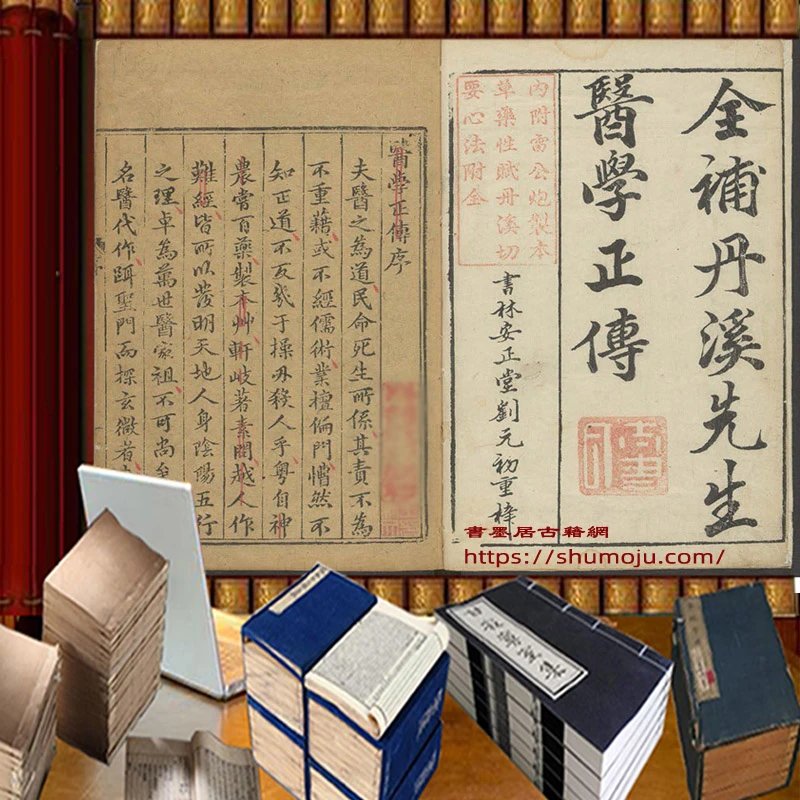 全補丹溪先生
醫學正傳
內附雷公炮製本
草藥性賦丹溪切
要心法附全
書林安正堂劉元初重梓
醫學正傳序
夫醫之為道民命死生所係其責不為
不重藉或不經儒術業擅偏門懵然不
知正道不反幾于操刃殺人乎粵自神
農嘗百藥製本艸軒岐著素問越人作
難經皆所以發明天地人身陰陽五行
之理卓為萬世醫家祖不可尚矣
名醫代作䀡聖門而探玄微者
書墨居古籍網
https://shumoju.com/